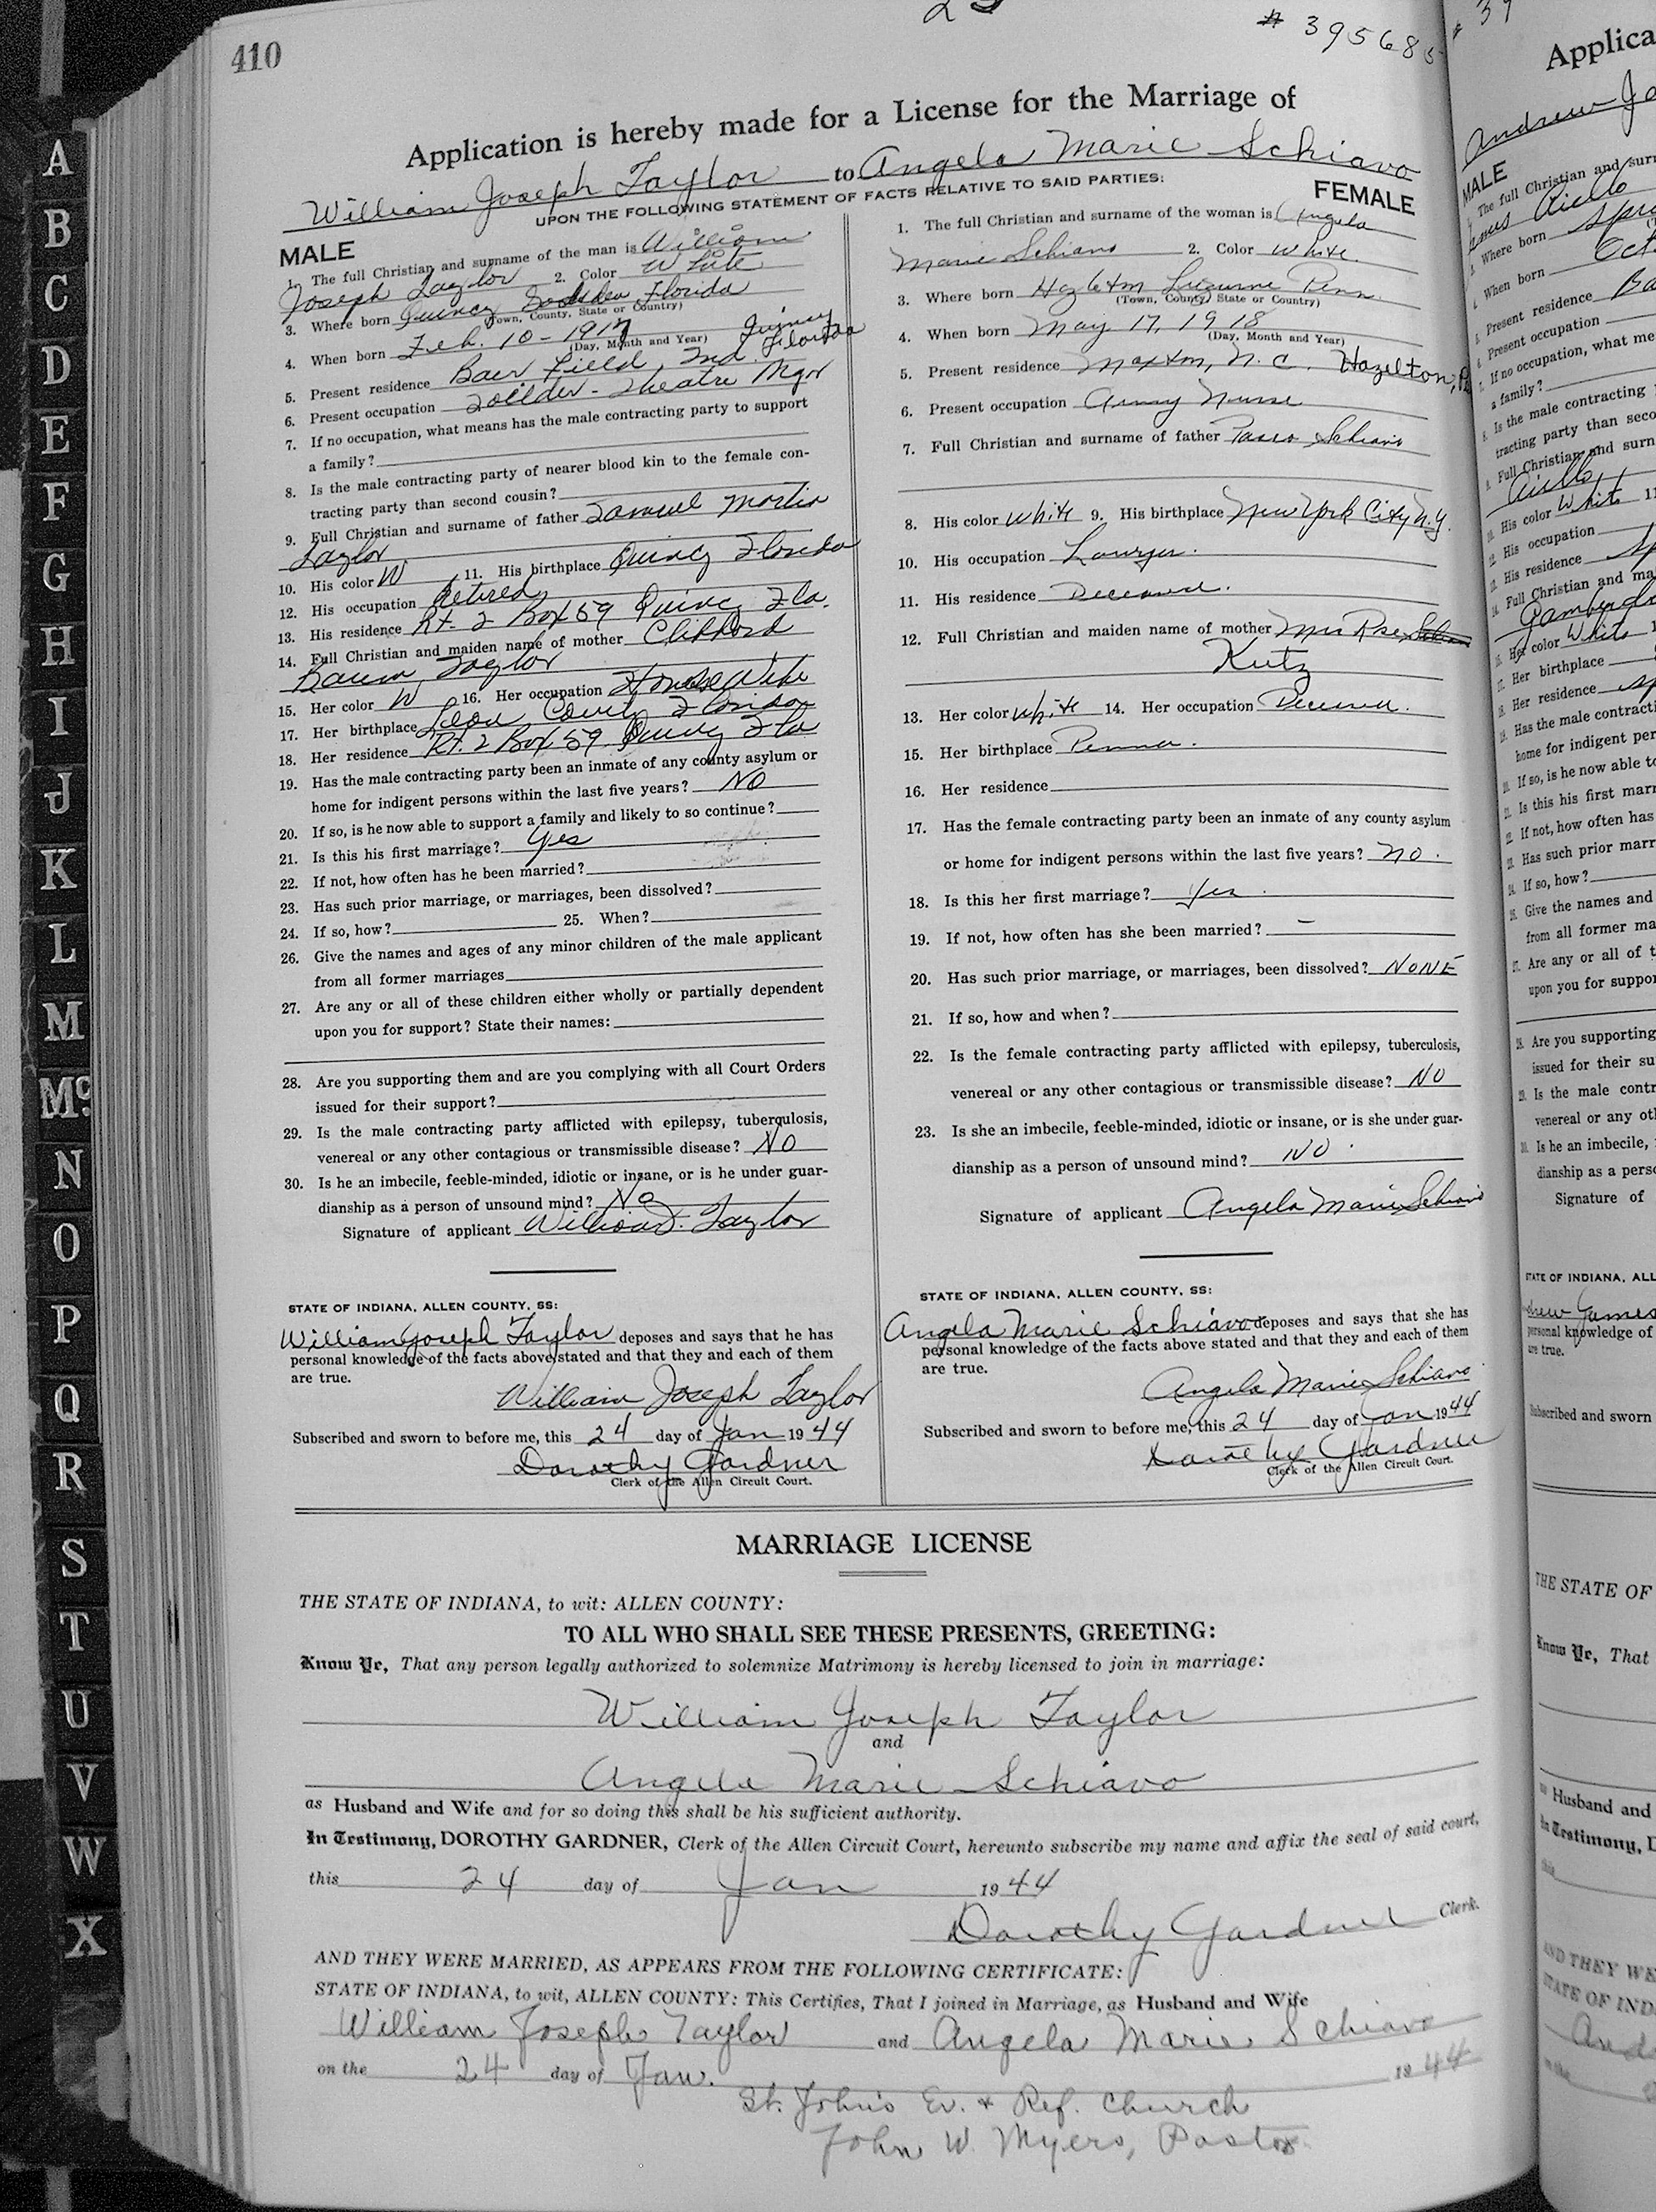 410
# 395685
Application is hereby made for a License for the Marriage of
William Joseph Taylor to Angela Marie Schiavo
UPON THE FOLLOWING STATEMENT OF FACTS RELATIVE TO SAID PARTIES:
MALE
1. The full Christian and surname of the man is William
Joseph Taylor 2. Color White
3. Where born Quincy Gadsden Florida
(Town, County, State or Country)
4. When born Feb. 10 - 1917
(Day, Month and Year)
Quincy
5. Present residence Baer Field, Ind. Florida
6. Present occupation Soldier - Theatre Mgr
7. If no occupation, what means has the male contracting party to support
a family?
8. Is the male contracting party of nearer blood kin to the female con-
tracting party than second cousin?
9. Full Christian and surname of father Samuel Martin
Taylor
10. His color W 11. His birthplace Quincy Florida
12. His occupation Retired
13. His residence Rt. 2 Box 59 Quincy Fla.
14. Full Christian and maiden name of mother Clifford
Taylor
15. Her color W 16. Her occupation House Wife
17. Her birthplace Leon County Florida
18. Her residence Rt. 2 Box 59 Quincy Fla
19. Has the male contracting party been an inmate of any county asylum or
home for indigent persons within the last five years? NO
20. If so, is he now able to support a family and likely to so continue?
21. Is this his first marriage? Yes
22. If not, how often has he been married?
23. Has such prior marriage, or marriages, been dissolved?
24. If so, how? 25. When?
26. Give the names and ages of any minor children of the male applicant
from all former marriages
27. Are any or all of these children either wholly or partially dependent
upon you for support? State their names:
28. Are you supporting them and are you complying with all Court Orders
issued for their support?
29. Is the male contracting party afflicted with epilepsy, tuberculosis,
venereal or any other contagious or transmissible disease? NO
30. Is he an imbecile, feeble-minded, idiotic or insane, or is he under guar-
dianship as a person of unsound mind? No
Signature of applicant William J. Taylor
STATE OF INDIANA, ALLEN COUNTY, SS:
William Joseph Taylor deposes and says that he has
personal knowledge of the facts above stated and that they and each of them
are true.
William Joseph Taylor
Subscribed and sworn to before me, this 24 day of Jan 1944
Dorothy Gardner
Clerk of the Allen Circuit Court.
FEMALE
1. The full Christian and surname of the woman is Angela
Marie Schiavo 2. Color White.
3. Where born Hazleton Luzerne Penn.
(Town, County, State or Country)
4. When born May 17, 1918
(Day, Month and Year)
5. Present residence Maxton, N. C. Hazelton, Pa
6. Present occupation Army Nurse
7. Full Christian and surname of father Schiavo
8. His color White 9. His birthplace New York City N.Y.
10. His occupation Lawyer.
11. His residence Deceased.
12. Full Christian and maiden name of mother Mrs Rose
Kutz
13. Her color White 14. Her occupation Deceased.
15. Her birthplace Penna.
16. Her residence
17. Has the female contracting party been an inmate of any county asylum
or home for indigent persons within the last five years? no.
18. Is this her first marriage? Yes.
19. If not, how often has she been married? -
20. Has such prior marriage, or marriages, been dissolved? NONE
21. If so, how and when?
22. Is the female contracting party afflicted with epilepsy, tuberculosis,
venereal or any other contagious or transmissible disease? NO
23. Is she an imbecile, feeble-minded, idiotic or insane, or is she under guar-
dianship as a person of unsound mind? NO.
Signature of applicant Angela Marie Schiavo
STATE OF INDIANA, ALLEN COUNTY, SS:
Angela Marie Schiavo deposes and says that she has
personal knowledge of the facts above stated and that they and each of them
are true.
Angela Marie Schiavo
Subscribed and sworn to before me, this 24 day of Jan 1944
Dorothy Gardner
Clerk of the Allen Circuit Court.
MARRIAGE LICENSE
THE STATE OF INDIANA, to wit: ALLEN COUNTY:
TO ALL WHO SHALL SEE THESE PRESENTS, GREETING:
Know Ye, That any person legally authorized to solemnize Matrimony is hereby licensed to join in marriage:
William Joseph Taylor
and
Angela Marie Schiavo
as Husband and Wife and for so doing this shall be his sufficient authority.
In Testimony, DOROTHY GARDNER, Clerk of the Allen Circuit Court, hereunto subscribe my name and affix the seal of said court,
this 24 day of Jan 1944
Dorothy Gardner Clerk.
AND THEY WERE MARRIED, AS APPEARS FROM THE FOLLOWING CERTIFICATE:
STATE OF INDIANA, to wit, ALLEN COUNTY: This Certifies, That I joined in Marriage, as Husband and Wife
William Joseph Taylor and Angela Marie Schiavo
on the 24 day of Jan. 1944
St. John's Ev. & Ref. Church
John W. Myers, Pastor.
A
B
C
D
E
F
G
H
I
J
K
L
M
Mc
N
O
P
Q
R
S
T
U
V
W
X